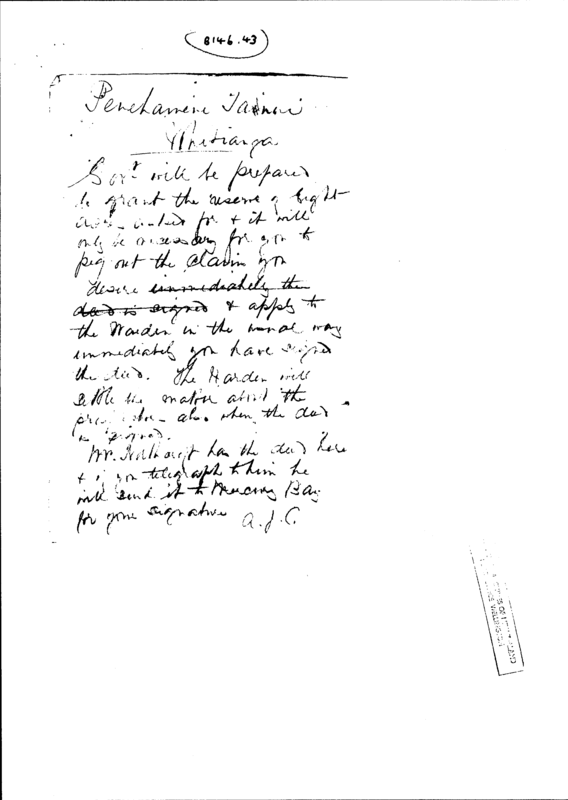 B146.43
Penehamene Tainui
Whitianga
Govt will be prepared
to grant the reserve of eight
acres asked for & it will
only be necessary for you to
peg out the claim you
desire immediately the
deed is signed & apply to
the Warden in the usual way
immediately you have signed
the deed. The Warden will
settle the matter about the
also when the deed
is signed.
Mr. has the deed here
& if you telegraph to him he
will send it to Mercury Bay
for your signature A.J.C.